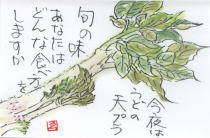 旬の味
あなたは
どんな食べ方を
しますか
今夜は
うどの
天プラ